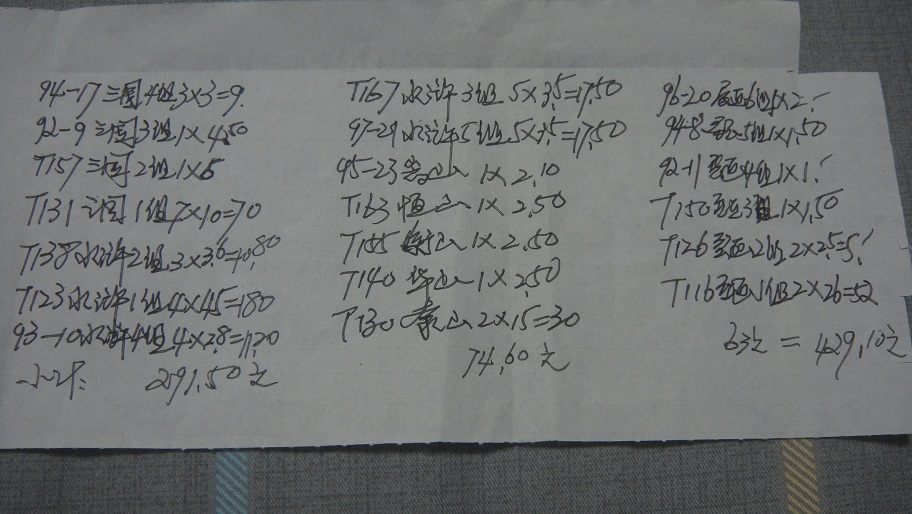 94-17 三国4组3×3=9.
92-9 三国3组1×4.50
T157 三国2组1×6
T131 三国1组7×10=70
T138水浒2组3×3.6=10.80
T123水浒1组4×45=180
93-10水浒4组4×2.8=11.20
小计: 291.50元
T167水浒3组 5×3.5=17.50
97-21水浒5组5×3.5=17.50
95-23嵩山 1×2.10
T163恒山 1×2.50
T155衡山1×2.50
T140华山1×2.50
T130泰山2×15=30
74.60元
96-20 6组1×2.
94-8 5组1×1.50
92-11 4组1×1.
T150 3组1×1.50
T126 2组2×2.5=5.
T116 1组2×26=52
63元 = 429.10元